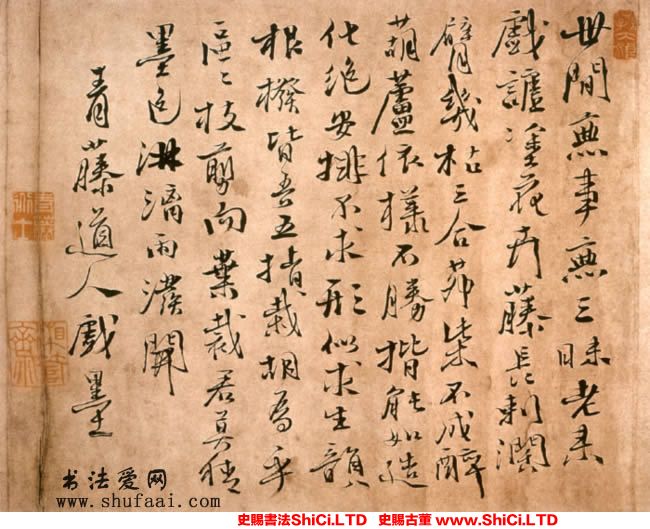 世間無事無三昧老来
戲謔塗花卉藤長刺濶
臂幾枯三合茆柴不成醉
葫蘆依樣不勝揩能如造
化絶安排不求形似求生韻
根撥皆吾五指栽胡爲乎
區〻枝剪而葉裁君莫猜
墨色淋漓雨潑開
青藤道人戲墨
书法爱网
www.shufaai.com
史賜書法ShiCi.LTD 史賜古董 www.ShiCi.LTD